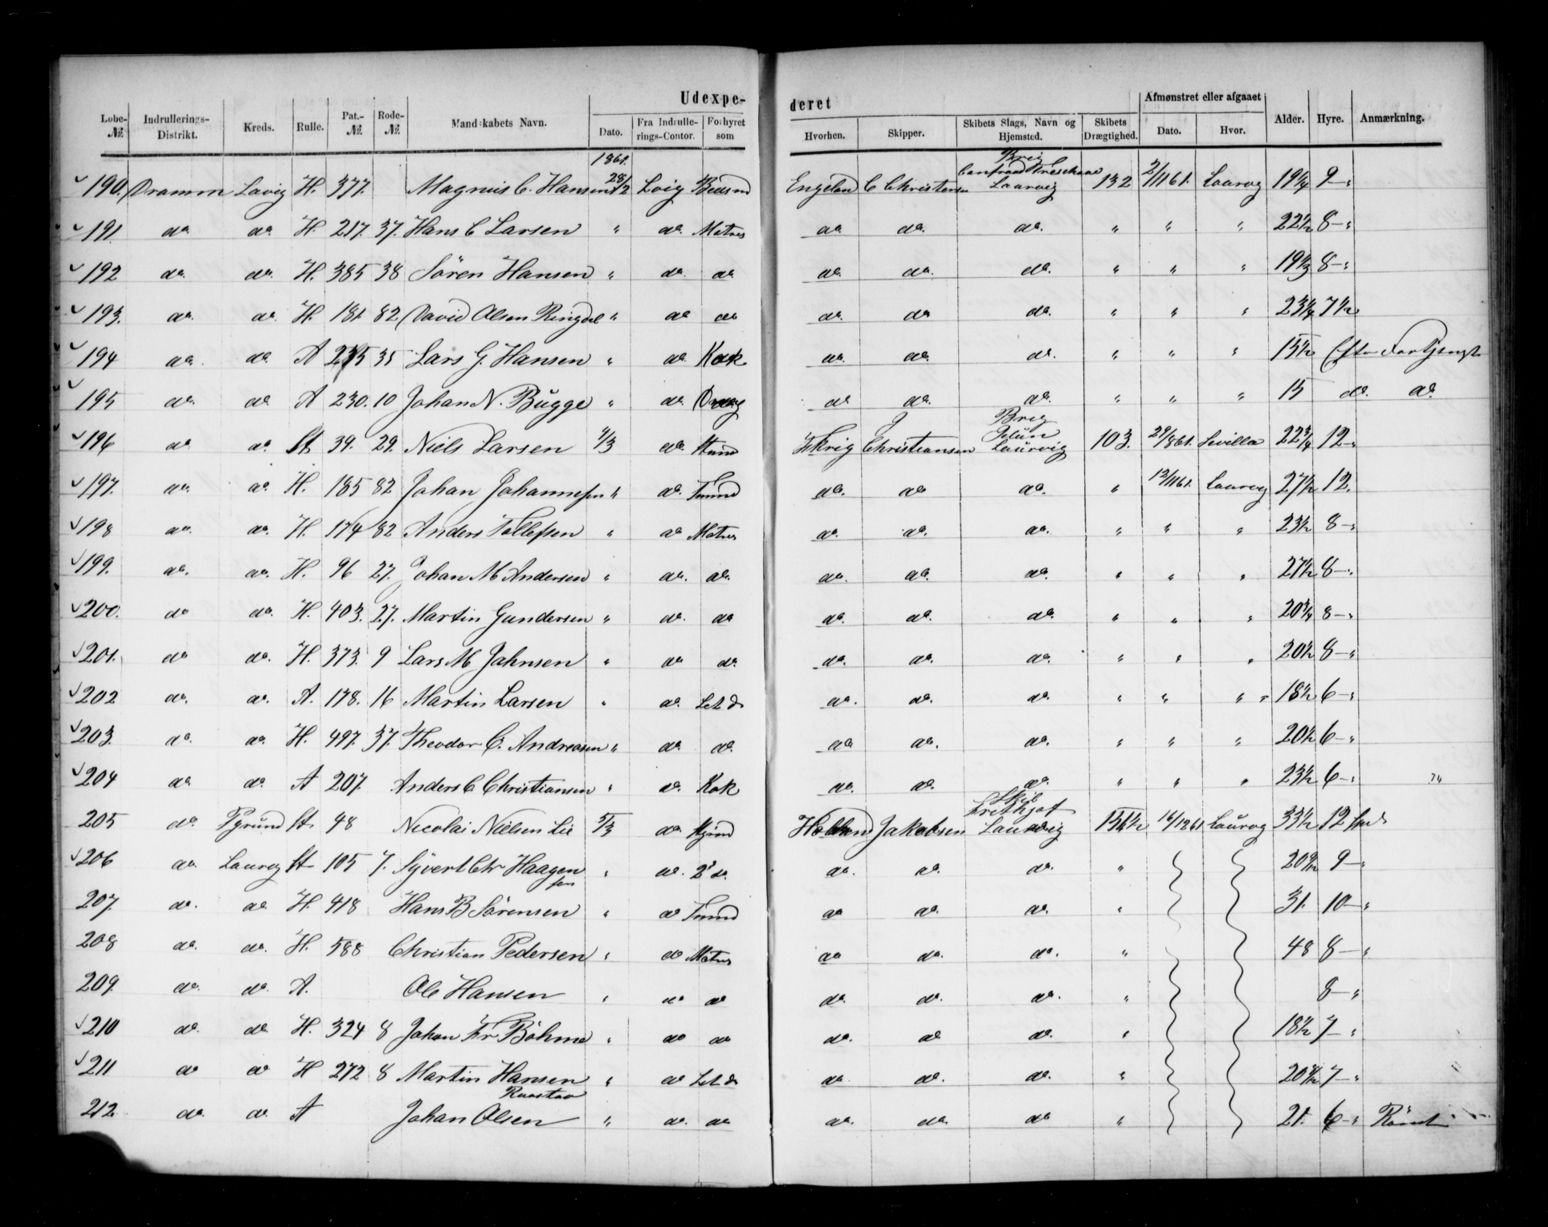 Udexpederet
Afmønstret eller afgaaet
Løbe-№ Indrullerings-Distrikt. Kreds. Rulle. Pat.-№ Rode-№ Mandskabets Navn. Dato. Fra Indrullerings-Contor. Forhyret som Hvorhen. Skipper. Skibets Slags, Navn og Hjemsted. Skibets Drægtighed. Dato. Hvor. Alder. Hyre. Anmærkning.
1861. Brig
190. Dramm Lavig H. 377. Magnus C. Hansen 28/2 Lvig England C Christensen Laurvig 132 2/11 61. Laurvg 19 1/4 9-"
191. do do. H. 217. 37. Hans C Larsen " do. Matros do do. do. " " " 22 1/2 8-"
192 do do. H. 385 38 Søren Hansen " do. do do. do. do. " " " 19 1/3 8-"
193. do. do. H. 181 82 David Olsen Ringdal " do do do. do do. " " " 23 3/4 7 1/2
194 do. do A 35 Lars G. Hansen " do Kok do. do. do. " " " 15 1/2 Efter
195 do. do A 230. 10 Johan N. Bugge " do. do do. do. " " " 15 do. do.
Brig
196 do do. St 39. 29. Niels Larsen 4/3 do. Christiansen Laurvig 103. 29/8 61. Sevilla 22 3/4 12-"
197. do. do. H. 185 82 Johan Johannesen " do. Tømmd do. do do. " 12/11 61. Laurvg 27 1/2 12.
198 do. do. H. 174 82 Anders Tollefsen " do Matros do. do. do. " " " 23 1/2 8-"
199. do. do. H. 96 27. Johan M Andersen " do. do. do. do. do. " " " 27 1/2 8-"
200. do do. H. 403. 27. Martin Gundersen " do. do do. do. do. " " " 20 3/4 8-"
201. do do. H. 373. 9 Lars M Jahnsen " do do. do. do. do. " " " 20 1/2 8-"
202 do. do. A. 178. 16 Martin Larsen " do. Let do do. do. do " " " 18 1/2 6-"
203. do. do. H. 497. 37. Theodor C. Andreasen " do do. do do. do. " " " 20 1/2 6-"
204 do do. A 207. Anders C Christiansen " do. Kok do. do. do " " " 23 1/2 6-"
Frithjof
205 do. St 48 Nicolai Nielsen Lie 5/3 do Holland Jakobsen Laurvig 151 1/2 16/12 61 Laurvg 33 1/2 12
206 do Laurvg St 105 7. Syvert Chr Haagensen " do. 2d do. do. do. do. " 20 1/2 9-"
207. do. do H. 418 Hans B Sørensen " do Tømmd do do. do. " 31. 10-"
208 do. do. H. 588 Christian Pedersen " do Matros do do. do. " 48 8-"
209. do. do. A. Ole Hansen " do do do. do. do. " 8-"
210 do. do H. 324 8 Johan Fr Böhme " do do do. do do. " 18 1/2 7-"
211 do do H 272 8 Martin Hansen " do Let do do. do. do. " 20 1/2 7-"
212. do. do A Johan Olsen " do. do do. do. do " 21. 6-" Rømt